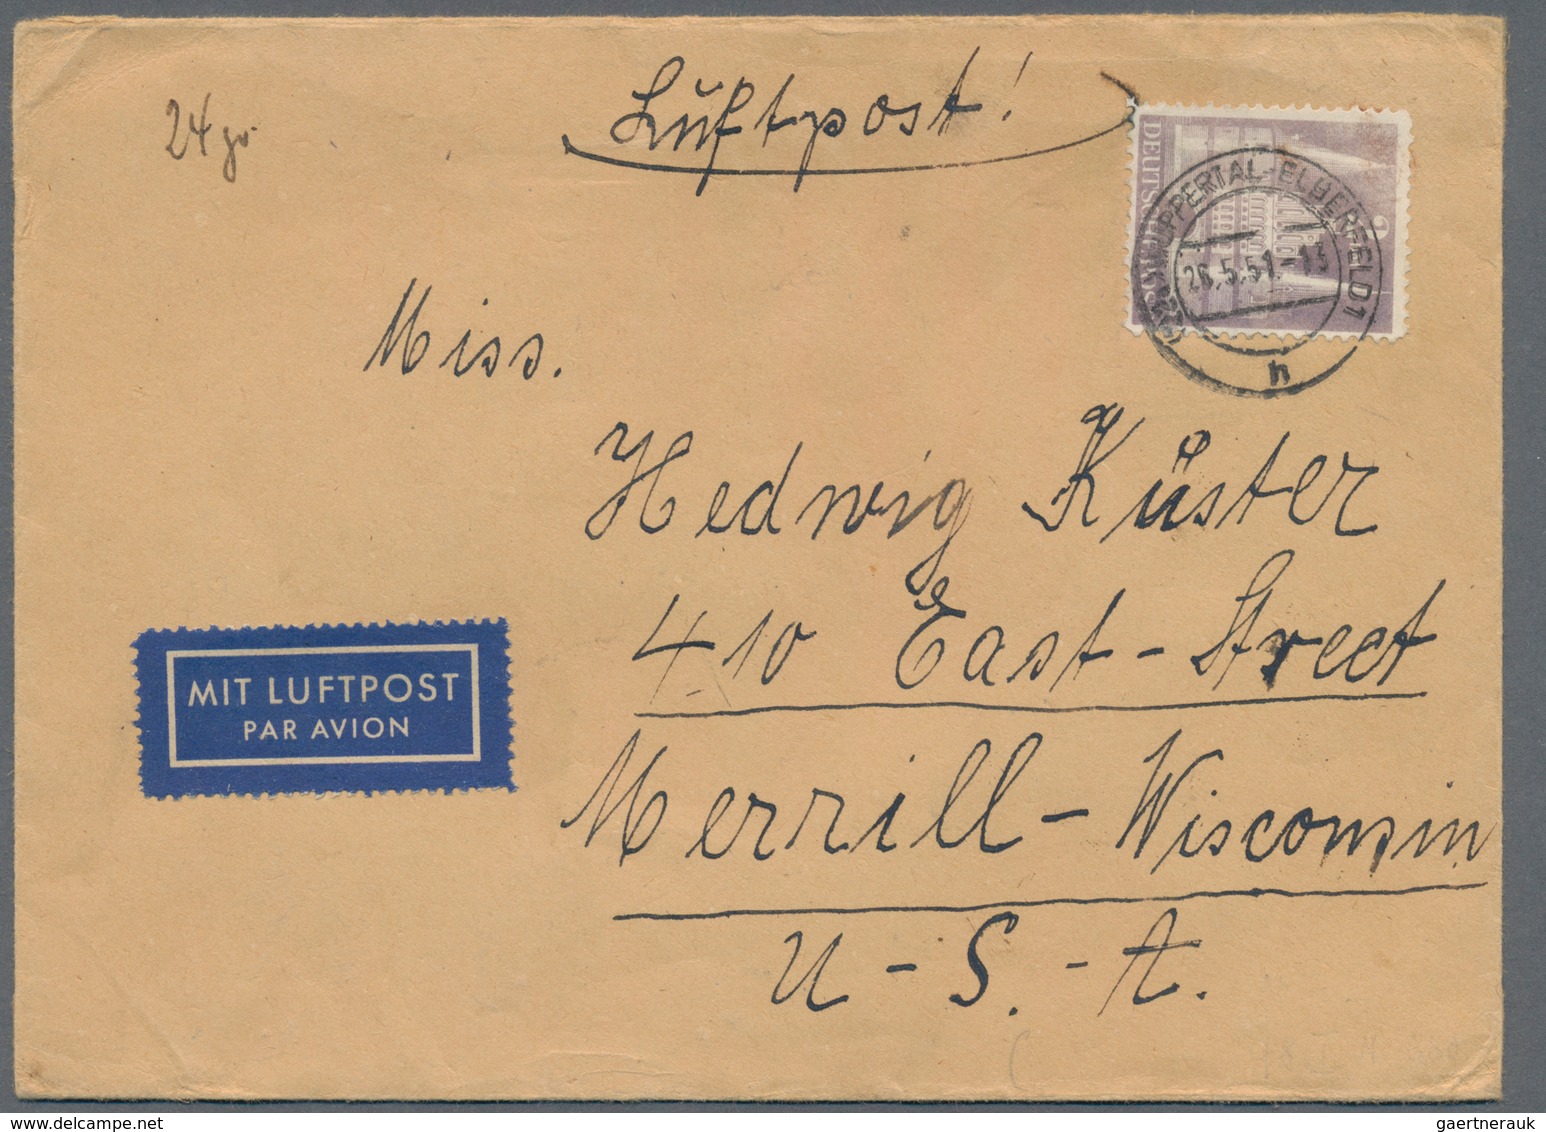 24 gr.
Luftpost!
DEUTSCHE POS
2
WUPPERTAL-ELBERFELD 1
26.5.51.-13
h
Miss.
Hedwig Küster
410 East-Street
Merrill-Wisconsin
U-S.-A.
MIT LUFTPOST
PAR AVION
gaertnerauk